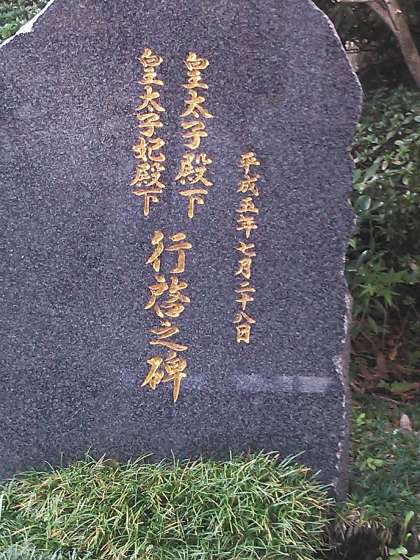 平成五年七月二十八日
皇太子殿下
皇太子妃殿下
行啓之碑